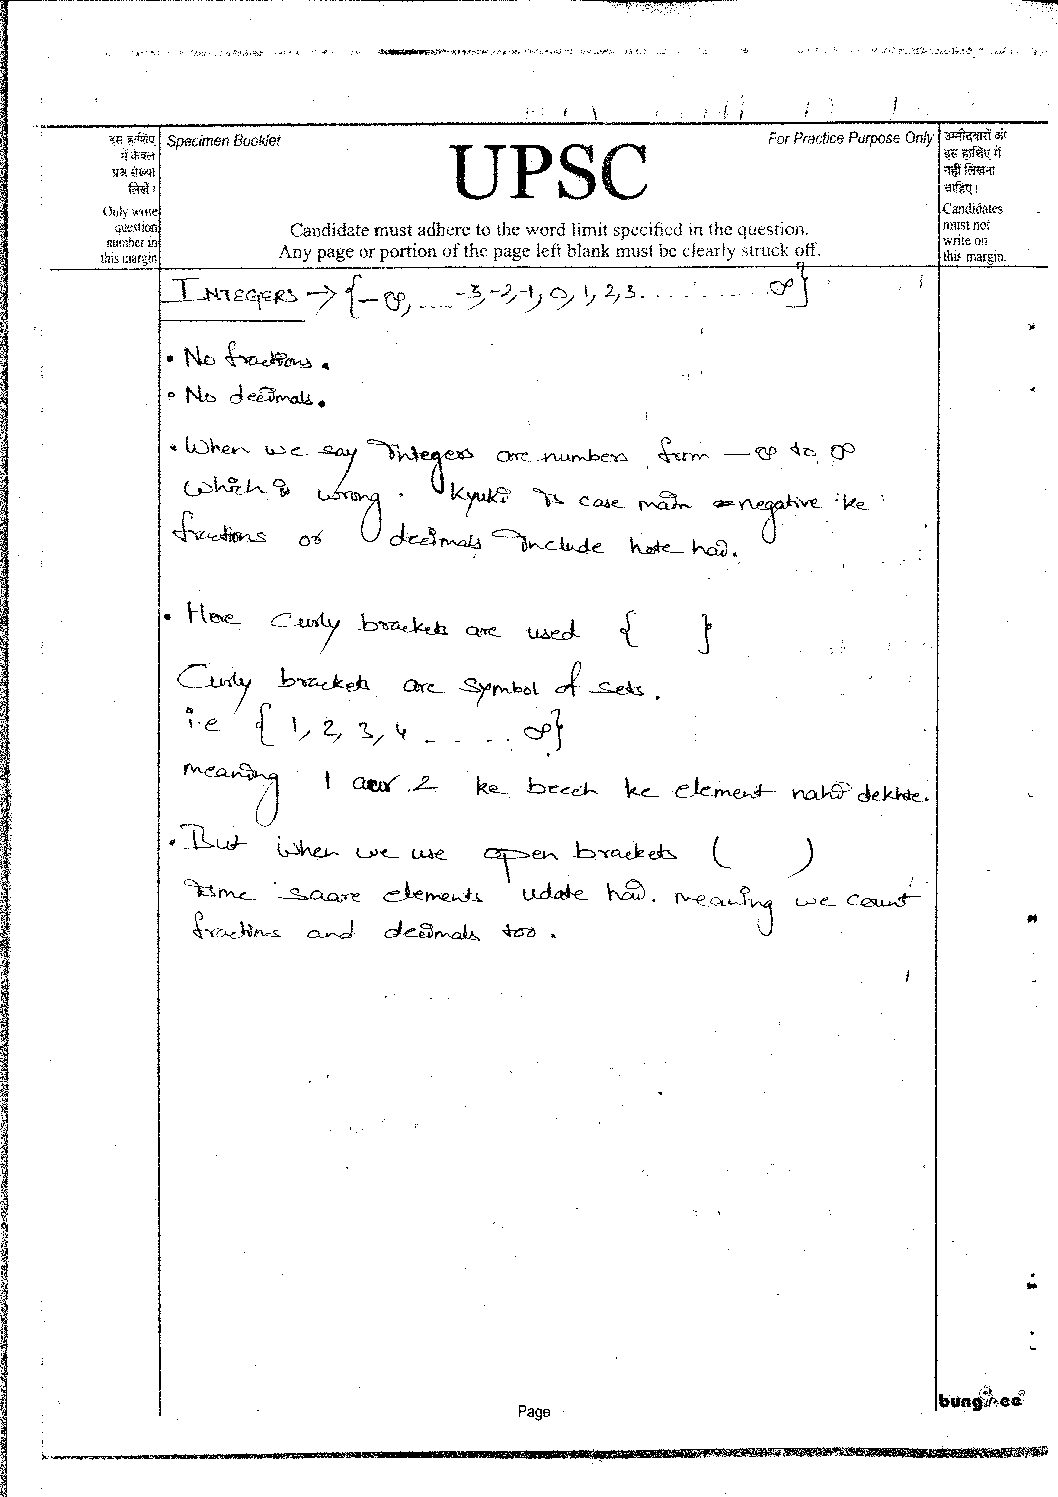 इस हाशिए में केवल प्रश्न संख्या लिखें।
Only write question number in this margin
Specimen Booklet
For Practice Purpose Only
UPSC
Candidate must adhere to the word limit specified in the question.
Any page or portion of the page left blank must be clearly struck off.
उम्मीदवारों को इस हाशिए में नहीं लिखना चाहिए।
Candidates must not write on this margin.
INTEGERS → {-∞, .... -3,-2,-1, 0, 1, 2, 3. . . . . . . . . . ∞}
• No fractions.
• No decimals.
• When we say Integers are numbers from -∞ to ∞
which is wrong. Kyuki is case main negative ke
fractions or decimals include hote hai.
• Here Curly brackets are used { }
Curly brackets are symbol of sets.
i.e { 1, 2, 3, 4 - . . . . ∞}
meaning 1 aur 2 ke beech ke element nahi dekhte.
• But when we use open brackets ( )
isme saare elements udate hai. meaning we count
fractions and decimals too.
Page
bungree